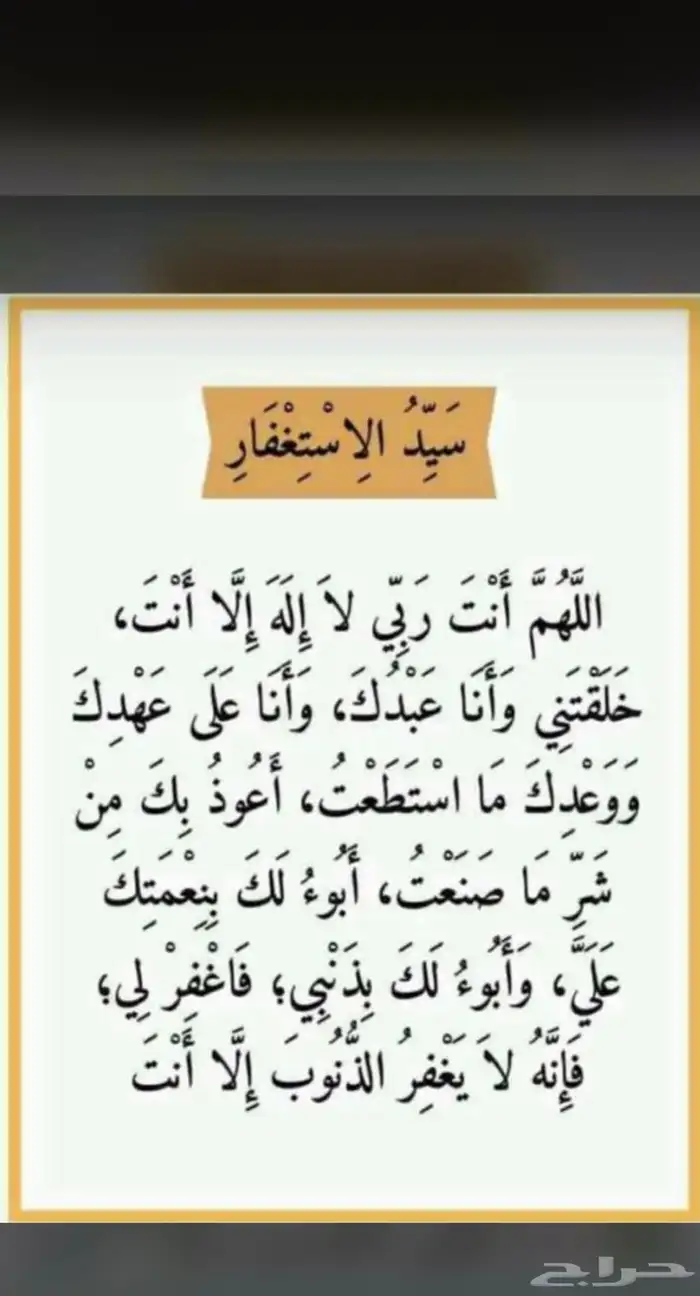 سَيِّدُ الِاسْتِغْفَارِ
اللَّهُمَّ أَنْتَ رَبِّي لاَ إِلَهَ إِلَّا أَنْتَ،
خَلَقْتَنِي وَأَنَا عَبْدُكَ، وَأَنَا عَلَى عَهْدِكَ
وَوَعْدِكَ مَا اسْتَطَعْتُ، أَعُوذُ بِكَ مِنْ
شَرِّ مَا صَنَعْتُ، أَبُوءُ لَكَ بِنِعْمَتِكَ
عَلَيَّ، وَأَبُوءُ لَكَ بِذَنْبِي؛ فَاغْفِرْ لِي؛
فَإِنَّهُ لاَ يَغْفِرُ الذُّنُوبَ إِلَّا أَنْتَ
حراج